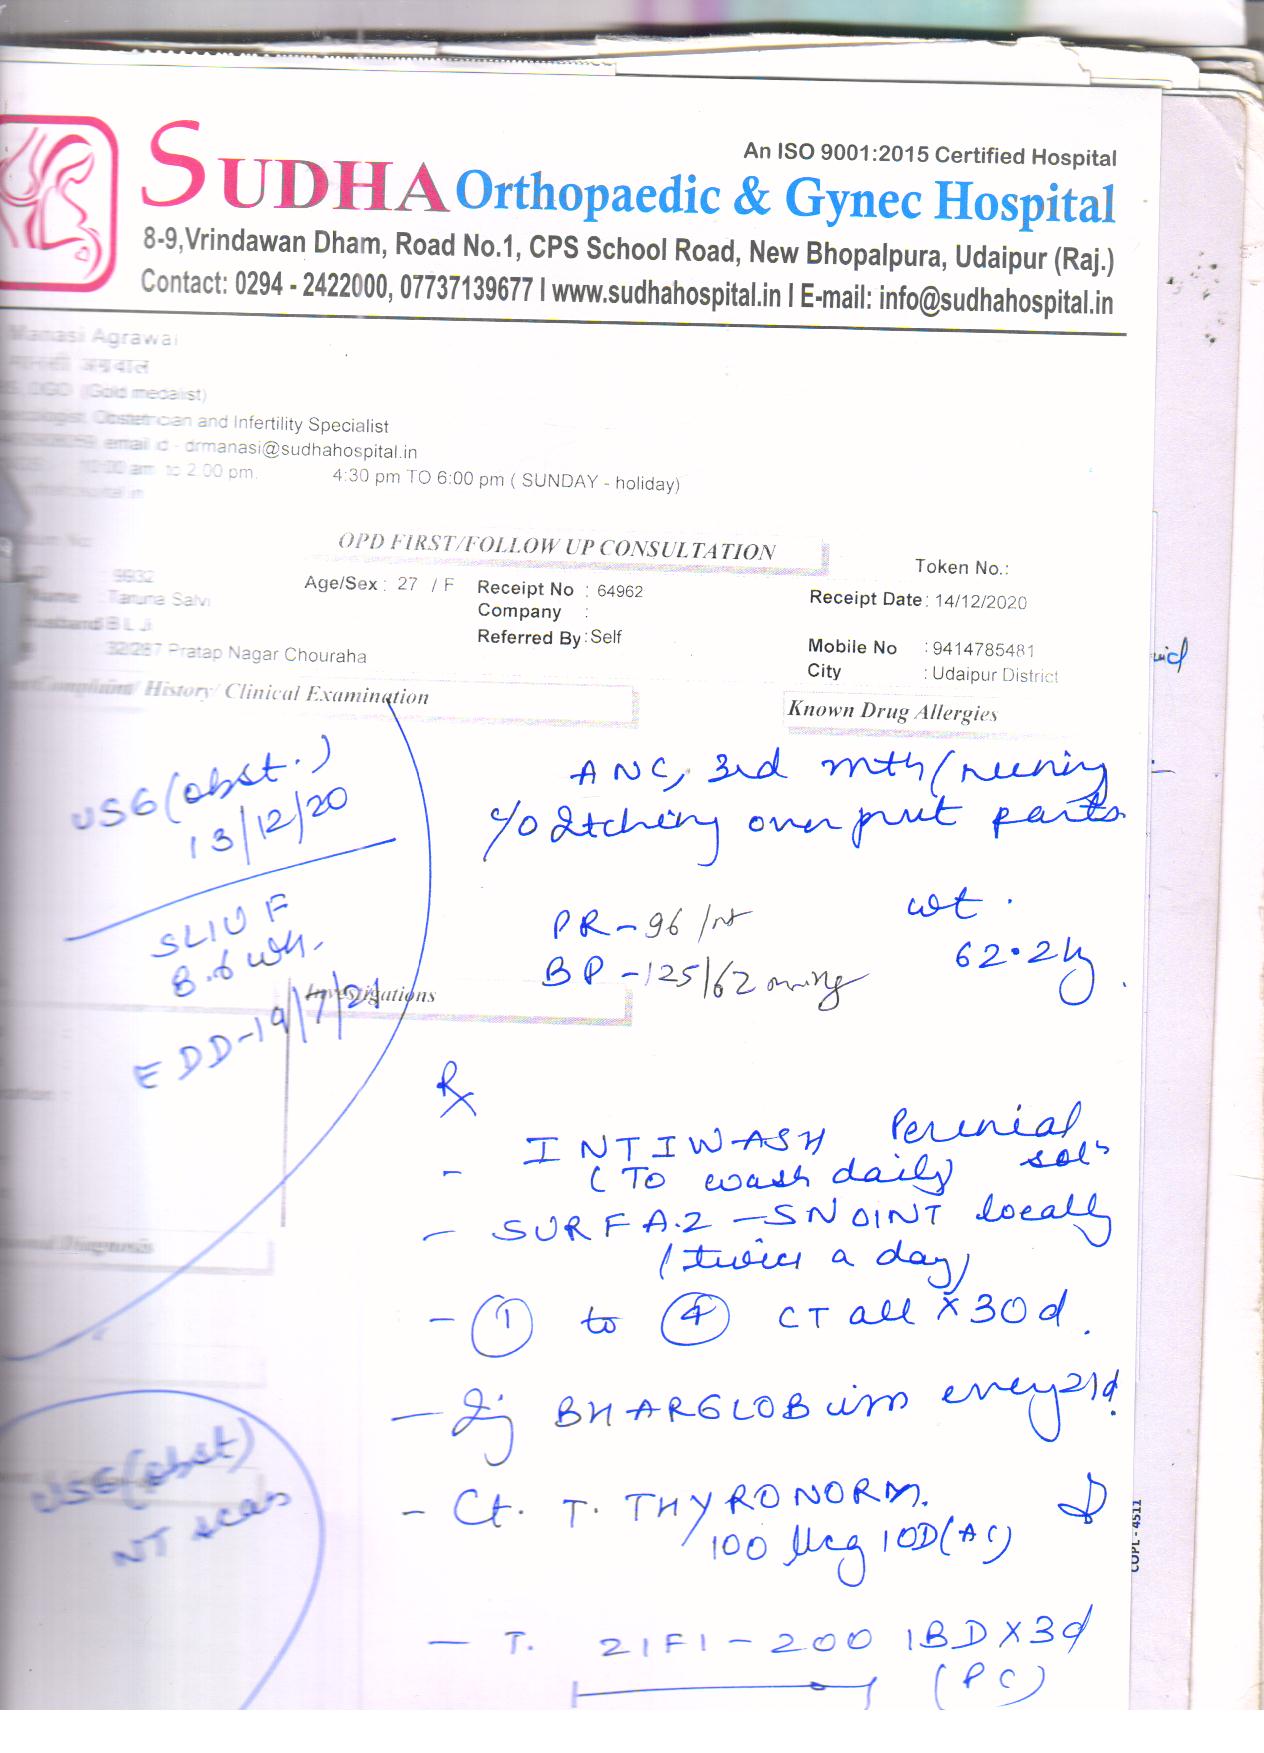 An ISO 9001:2015 Certified Hospital
SUDHA Orthopaedic & Gynec Hospital
8-9,Vrindawan Dham, Road No.1, CPS School Road, New Bhopalpura, Udaipur (Raj.)
Contact: 0294 - 2422000, 07737139677 I www.sudhahospital.in I E-mail: info@sudhahospital.in
Manasi Agrawal
मानसी अग्रवाल
DGO (Gold medalist)
Obstetrician and Infertility Specialist
email id - drmanasi@sudhahospital.in
10:00 am to 2:00 pm. 4:30 pm TO 6:00 pm ( SUNDAY - holiday)
OPD FIRST/FOLLOW UP CONSULTATION
Token No.:
9932 Age/Sex : 27 / F Receipt No : 64962 Receipt Date : 14/12/2020
Name : Taruna Salvi Company :
Husband B L Ji Referred By : Self Mobile No : 9414785481
32/287 Pratap Nagar Chouraha City : Udaipur District
Complaint/ History/ Clinical Examination Known Drug Allergies
USG (obst.)
13/12/20
SLIUF
8.6 wk.
EDD-19/7/21
ANC, 3rd mth/running
c/o Itching over pvt parts
PR-96/mt wt.
BP-125/62 mmHg 62.2 kg
Investigations
Rx
- INTIWASH Perenial soln
(To wash daily)
- SURFAZ-SN OINT locally
(twice a day)
- 1 to 4 CT all x 30d.
- Inj BHARGLOB im every 21d.
- Ct. T. THYRONORM.
100 mcg 1OD (AC)
- T. ZIFI-200 1BD X 3d
(PC)
Diagnosis
USG (obst)
NT scan
COPL - 4511